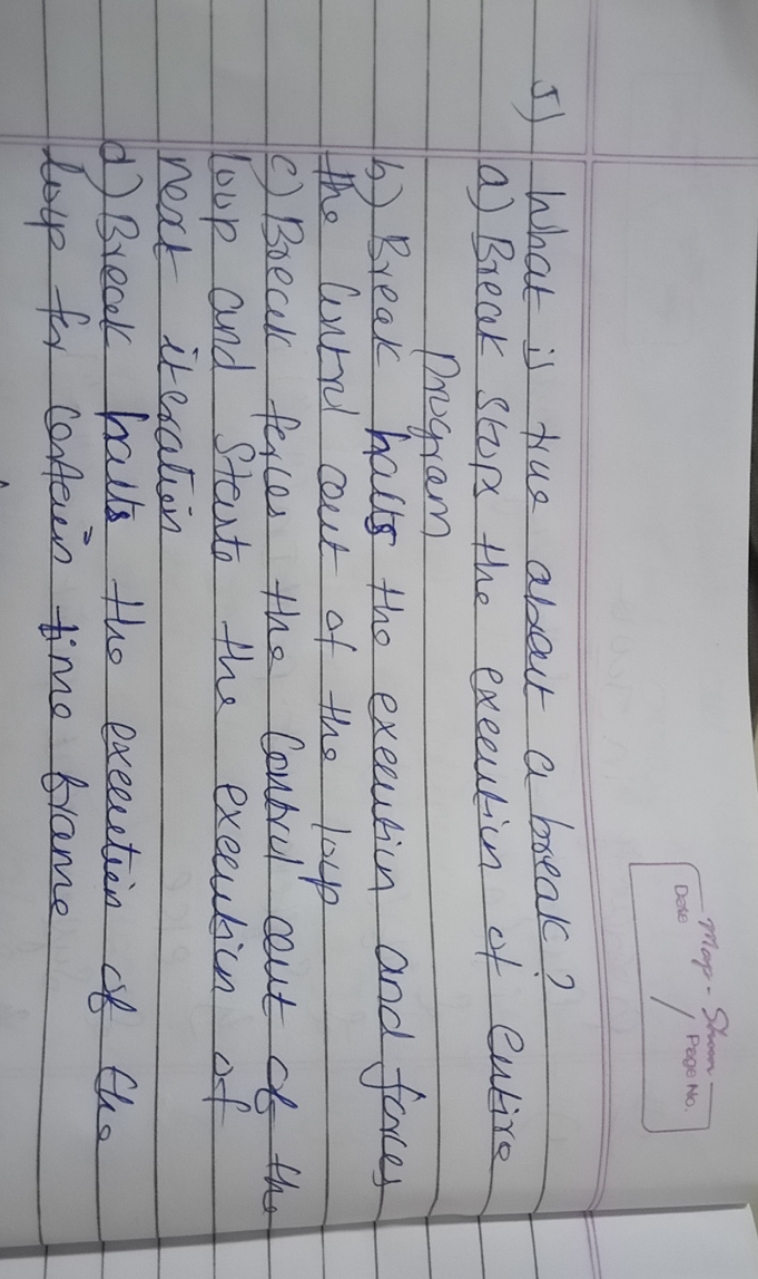 Date
Page No.
5) What is true about a break?
a) Break stops the execution of entire
program
b) Break halts the execution and forces
the control out of the loop
c) Break forces the control out of the
loop and starts the execution of
next iteration
d) Break halts the execution of the
loop for certain time frame